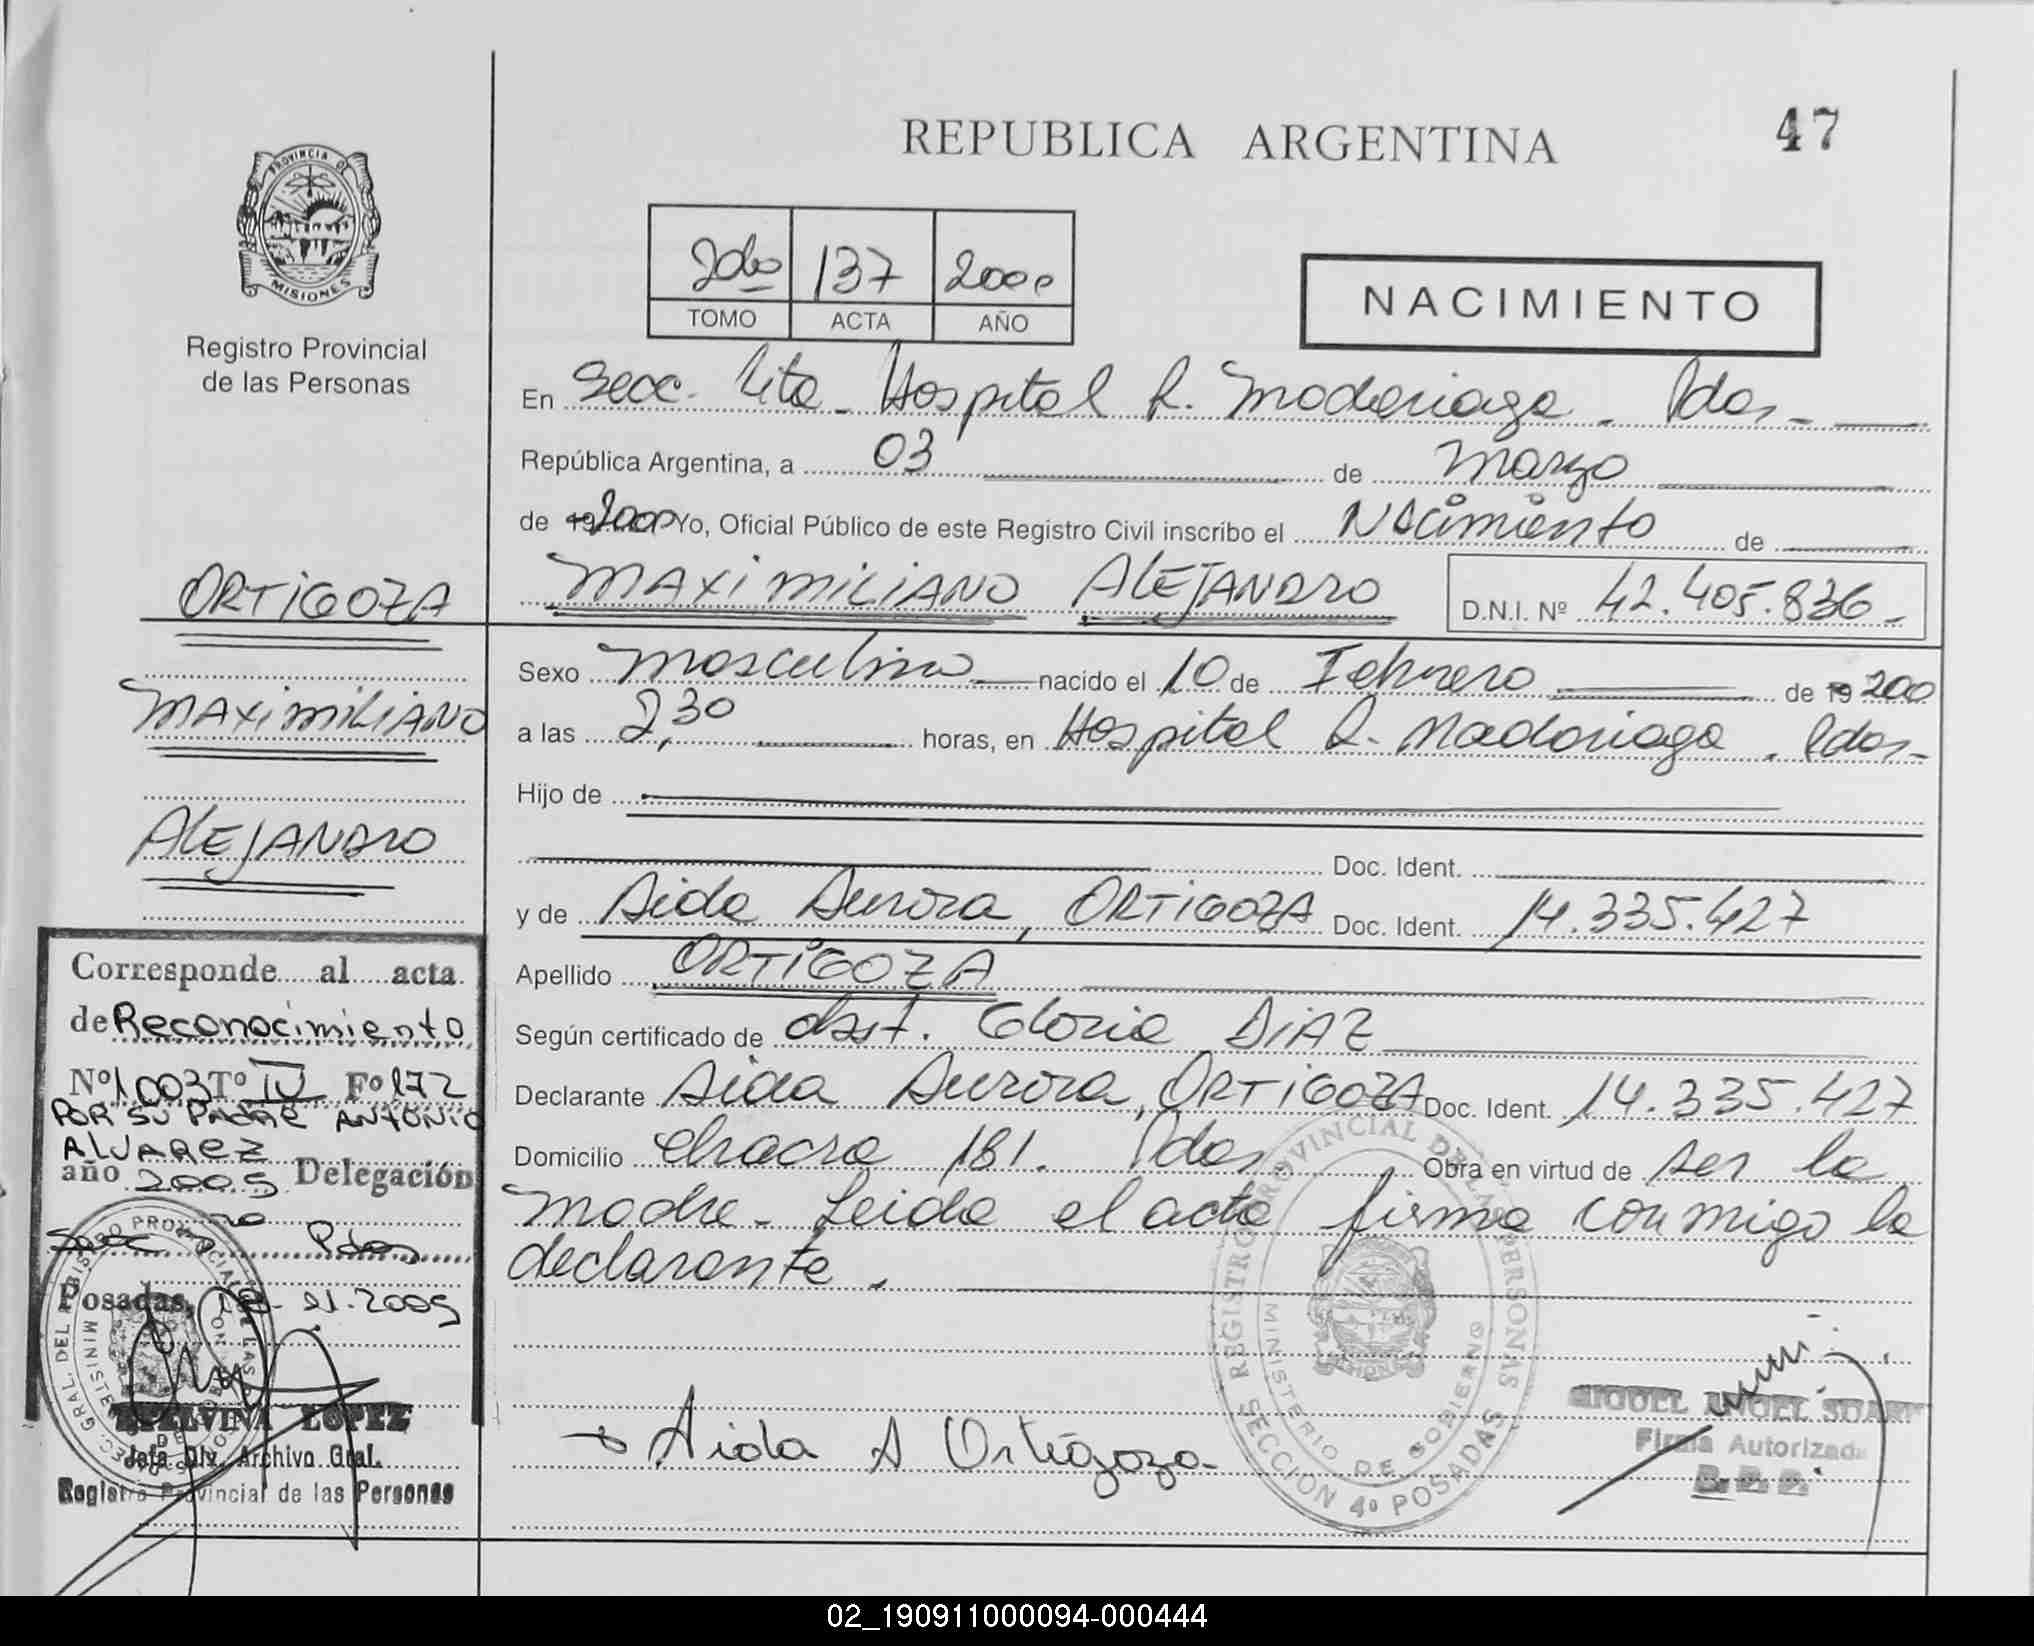 REPUBLICA ARGENTINA
47
PROVINCIA DE
MISIONES
Registro Provincial
de las Personas
2do 137 2000
TOMO ACTA AÑO
NACIMIENTO
En Secc. 4ta - Hospital R. Madariaga - Pdas -
República Argentina, a 03 de Marzo
de 19 2000 Yo, Oficial Público de este Registro Civil inscribo el Nacimiento de
MAXIMILIANO ALEJANDRO D.N.I. Nº 42.405.836-
ORTIGOZA
MAXIMILIANO
ALEJANDRO
Sexo Masculino nacido el 10 de Febrero de 19 200
a las 2,30 horas, en Hospital R. Madariaga. Pdas-
Hijo de
Doc. Ident.
y de Aida Aurora, ORTIGOZA Doc. Ident. 14.335.427
Apellido ORTIGOZA
Según certificado de obst. Gloria DIAZ
Declarante Aida Aurora, ORTIGOZA Doc. Ident. 14.335.427
Domicilio Chacra 181. Pdas Obra en virtud de ser la
madre - Leida el acta firma conmigo la
declarante.
Corresponde al acta
de Reconocimiento
Nº 1003 Tº IV Fº 172
POR SU PADRE ANTONIO
ALVAREZ
año 2005 Delegación
Secc Pdas
Posadas, 21.2005
LOPEZ
Jefa Div. Archivo Gral.
Registro Provincial de las Personas
Aida A Ortigoza-
REGISTRO PROVINCIAL DE LAS PERSONAS
MINISTERIO DE GOBIERNO
SECCION 4º POSADAS
MIGUEL ANGEL
Firma Autorizada
R. P. P.
02_190911000094-000444